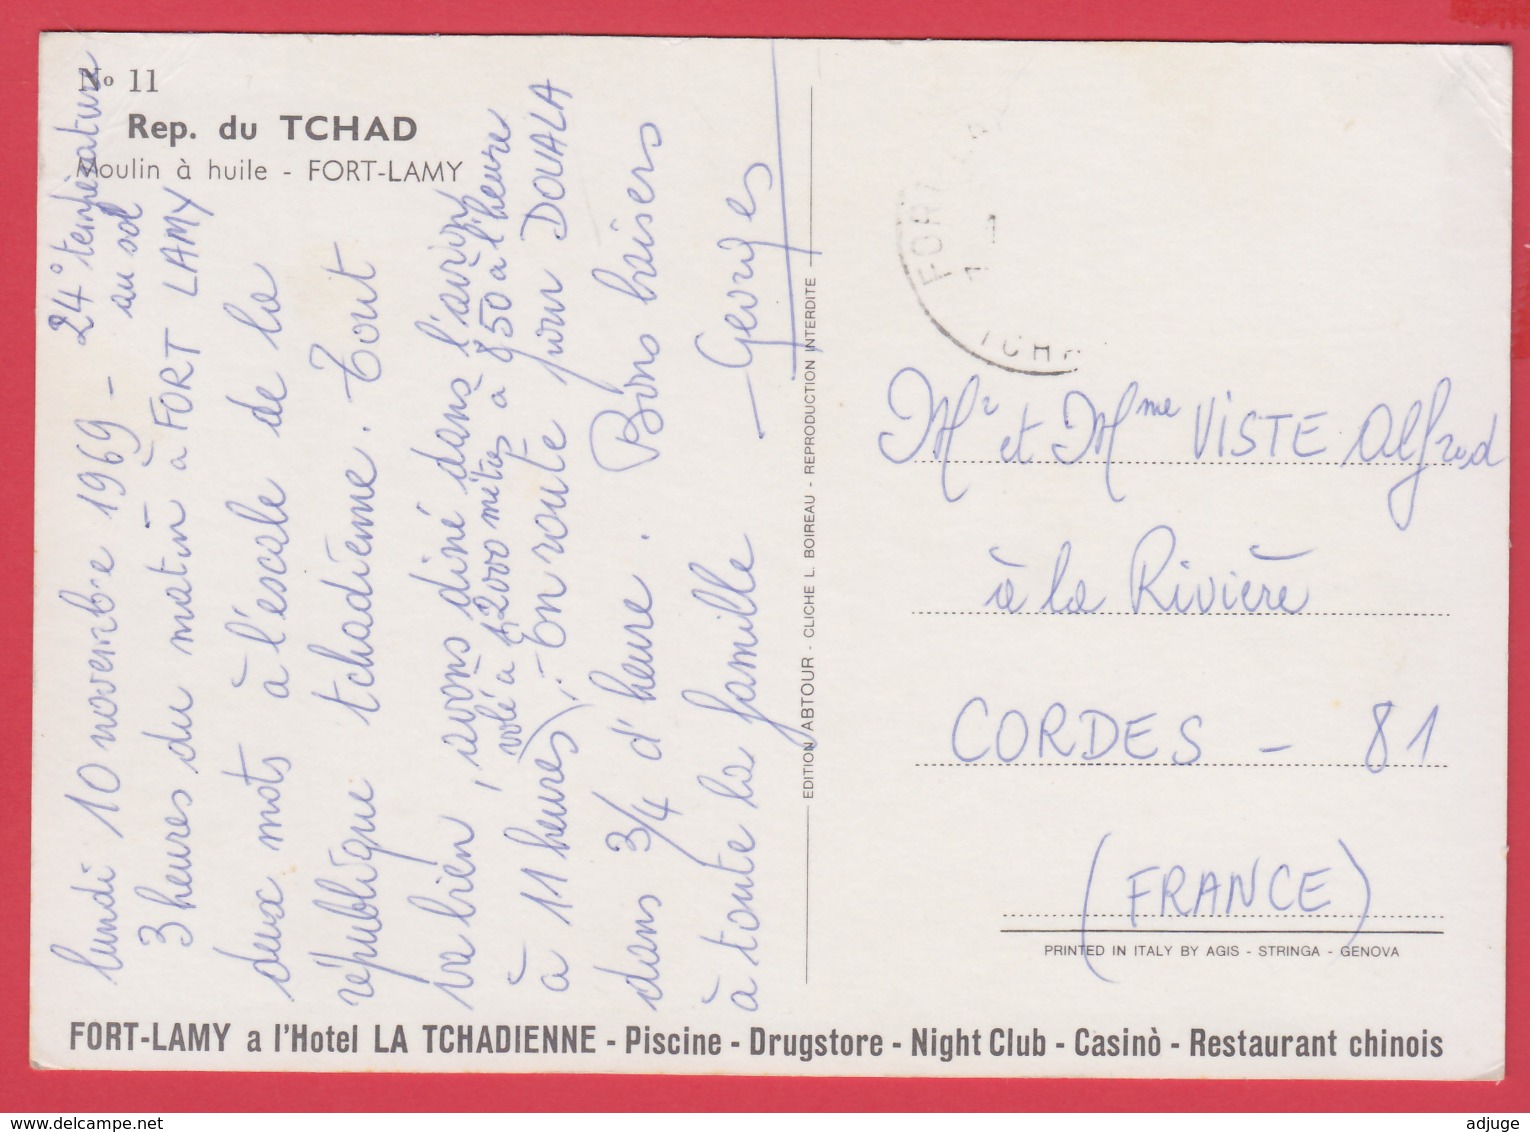 No 11
Rep. du TCHAD
Moulin à huile - FORT-LAMY
lundi 10 novembre 1969 - 24° température
au sol
3 heures du matin à FORT LAMY
deux mots à l'escale de la
république tchadienne. Tout
va bien, avons diné dans l'avion
volé à 12000 mètres à 850 à l'heure
à 11 heures). En route pour DOUALA
dans 3/4 d'heure. Bons baisers
à toute la famille - Georges
EDITION ABTOUR - CLICHE L. BOIREAU - REPRODUCTION INTERDITE
FORT
TCHA
Mr et Mme VISTE Alfred
à la Rivière
CORDES - 81
(FRANCE)
PRINTED IN ITALY BY AGIS - STRINGA - GENOVA
FORT-LAMY a l'Hotel LA TCHADIENNE - Piscine - Drugstore - Night Club - Casinò - Restaurant chinois
www.delcampe.net
adjuge